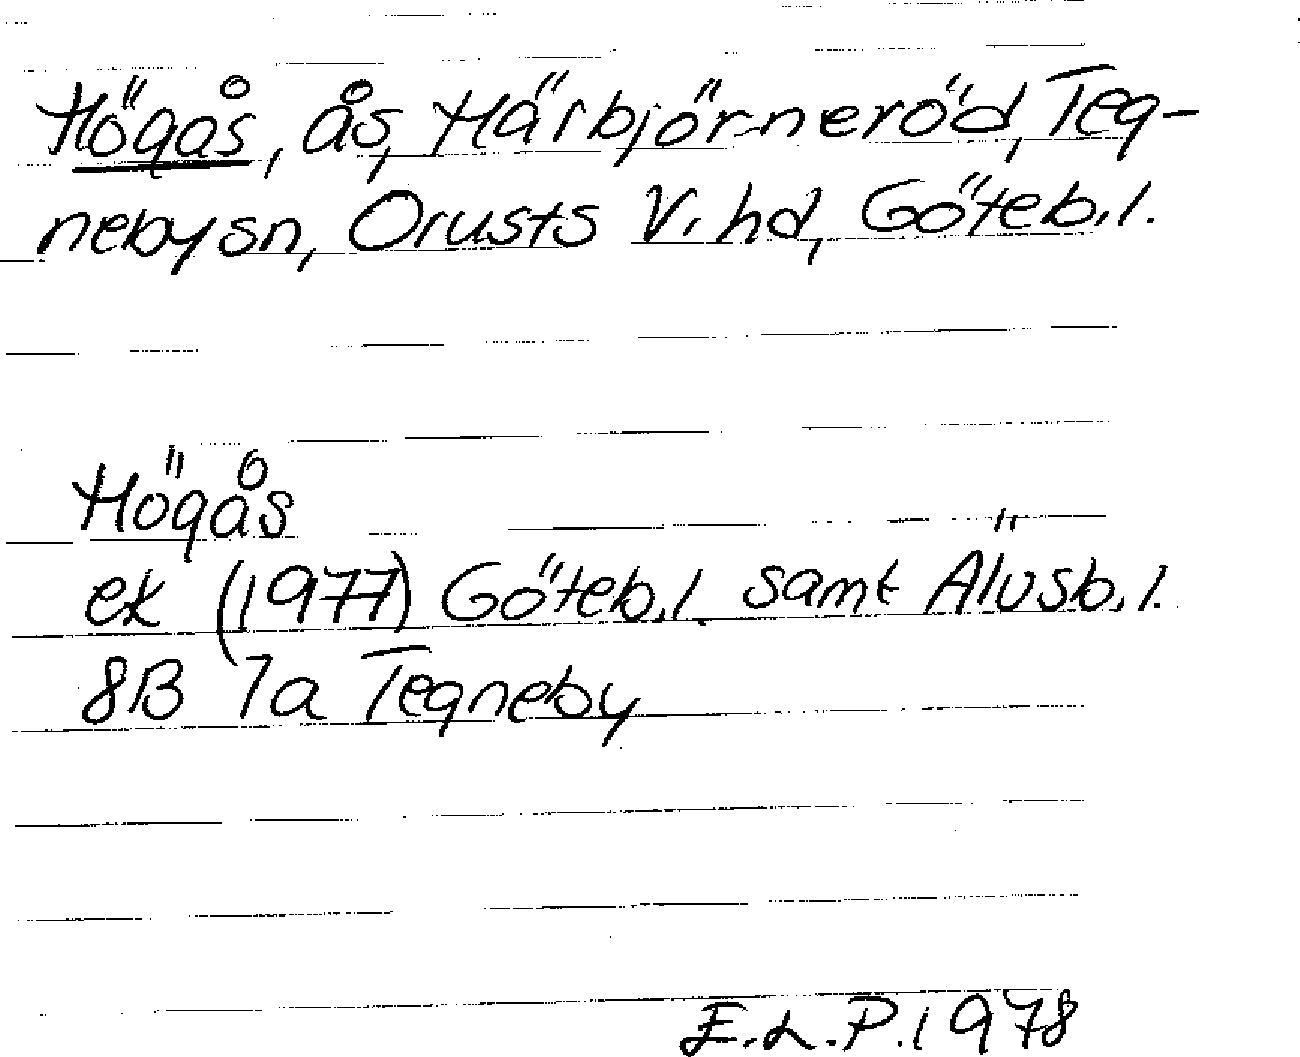 Högås, ås, Härbjörneröd, Teg-
neby sn, Orusts V. hd, Göteb.l.
Högås
ek (1977) Göteb.l. samt Älvsb.l.
8B 7a Tegneby
E.L.P. 1978